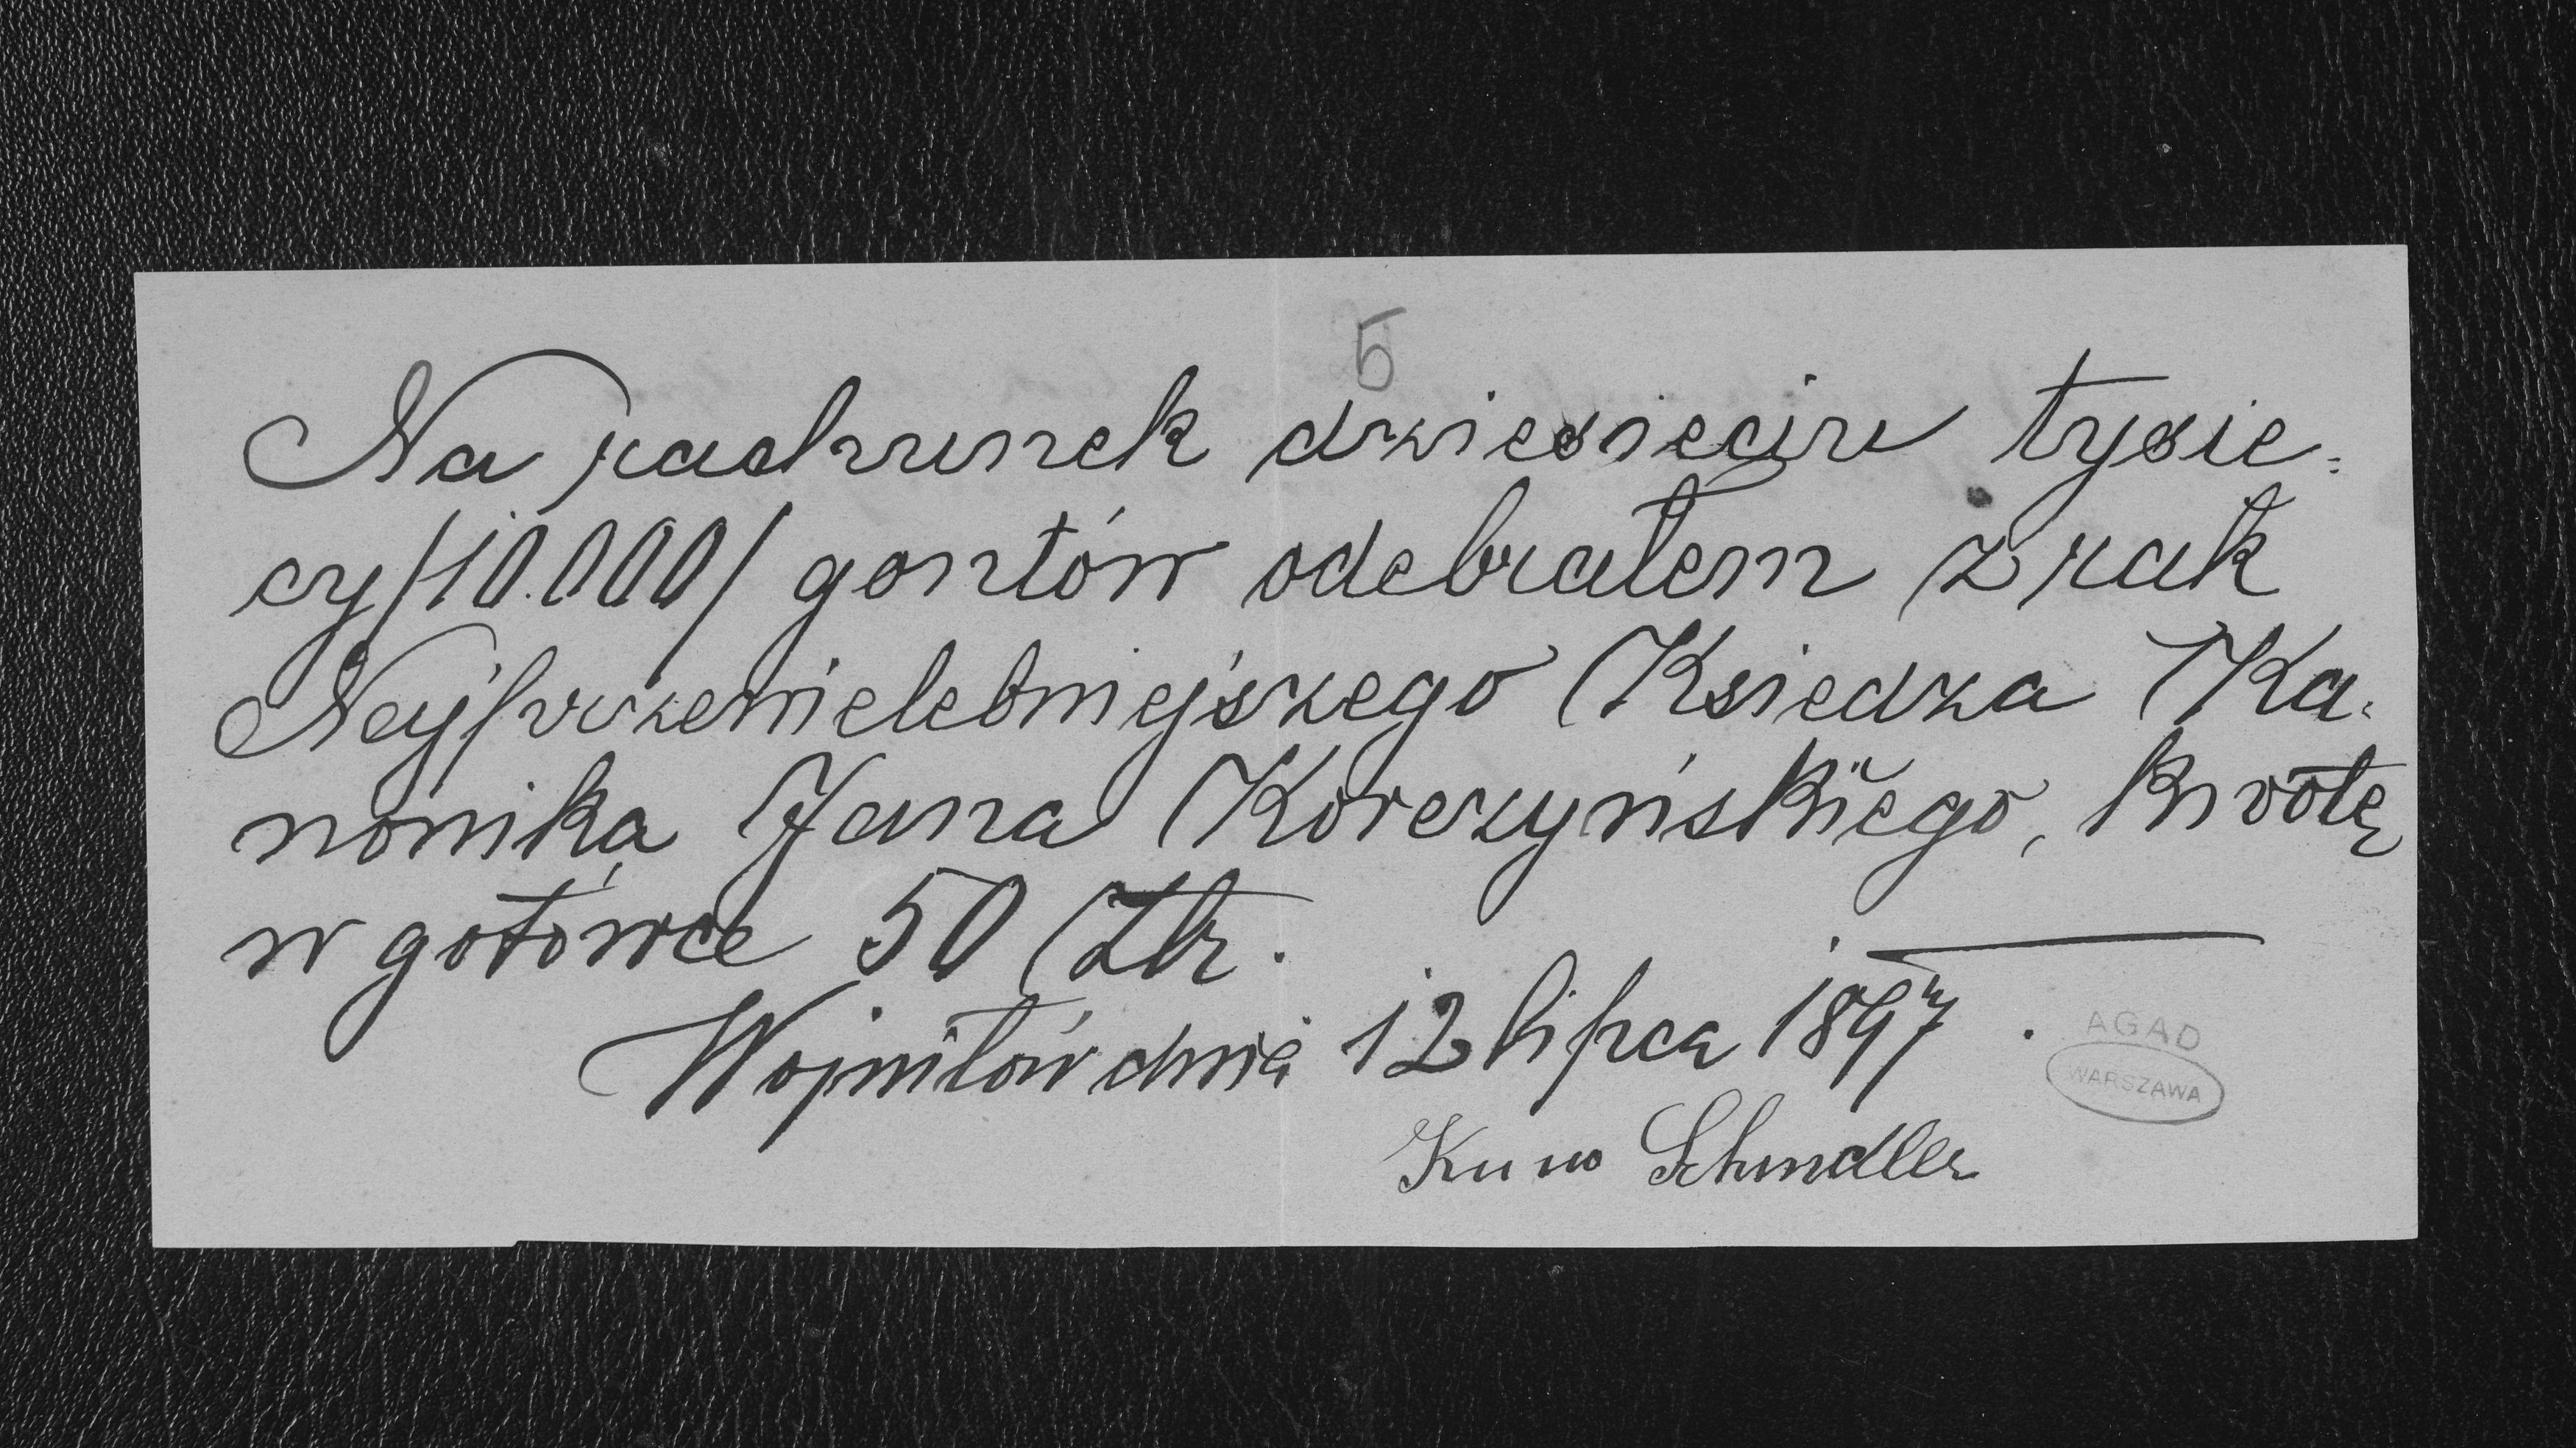 5
Na rachunek dziesięciu tysię=
cy /10.000/ gontów odebrałem z rąk
Nejprzewielebniejszego Księdza Ka=
nonika Jana Korczyńskiego, kwotę
w gotówce 50 Złr.
Wojniłów dnia 12 lipca 1897.
Kuno Schindler
AGAD
WARSZAWA